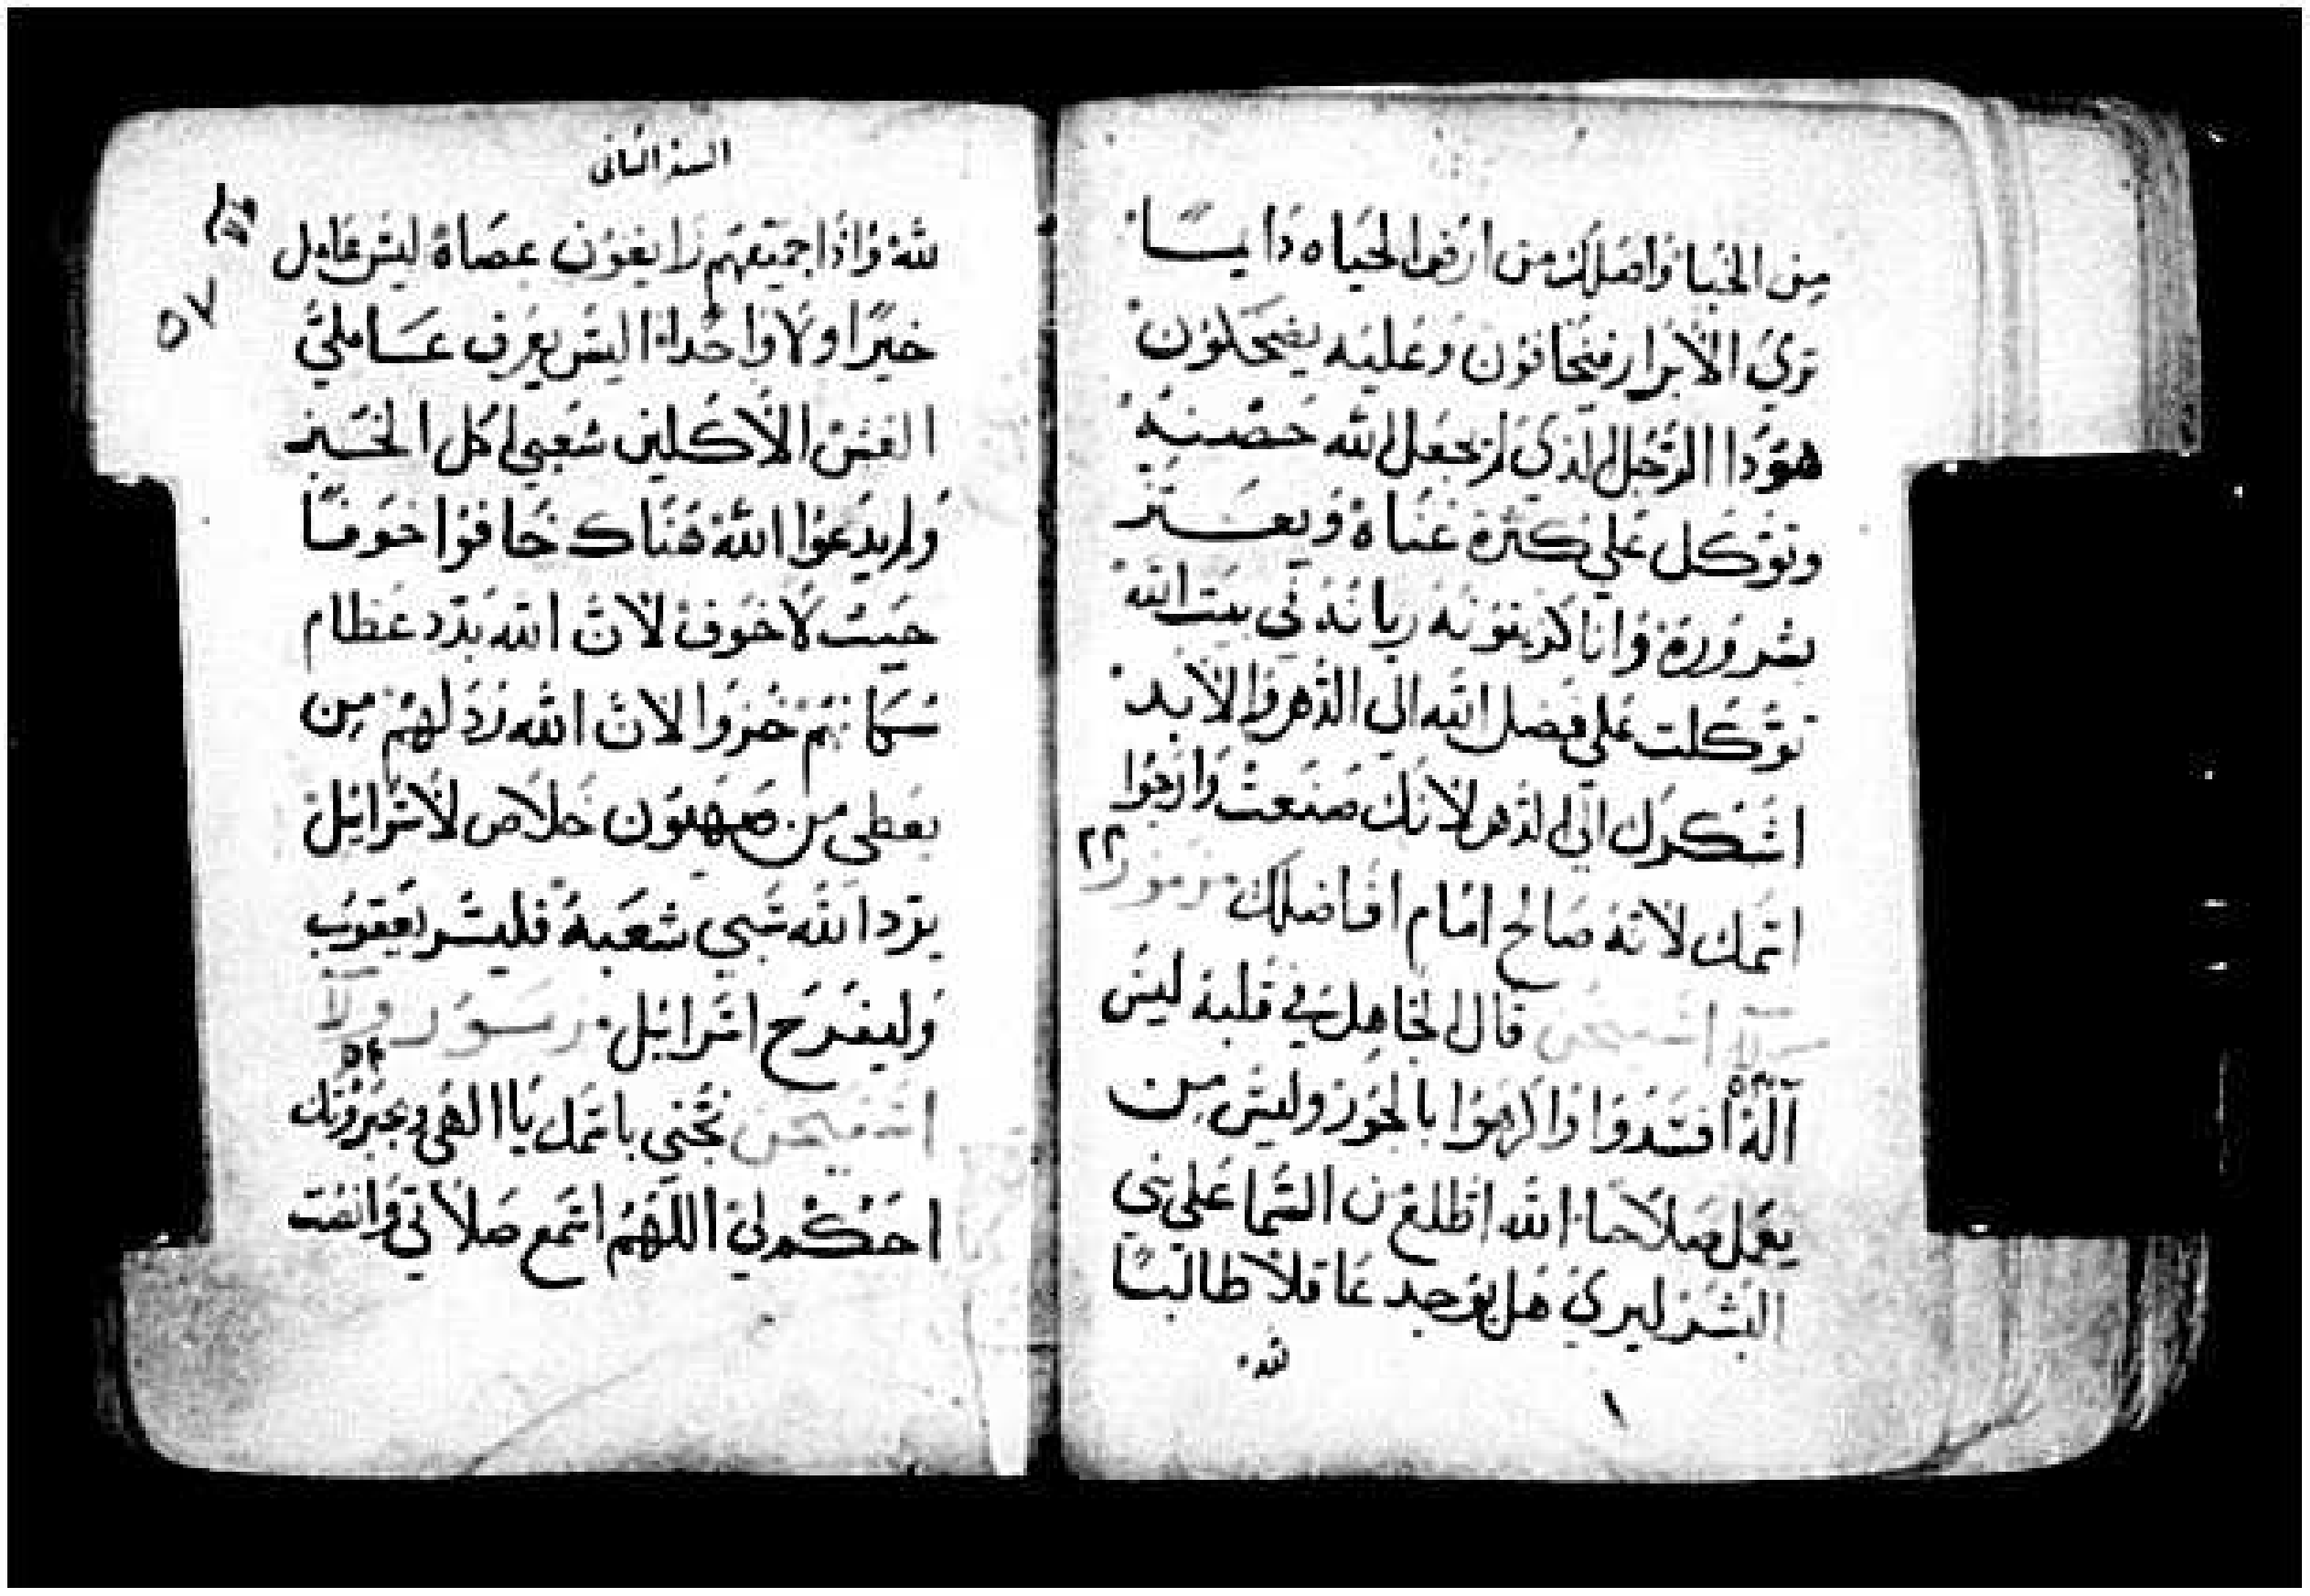 من الخبا واصلك من ارض الحياه دايما
تري الابرار فيخافون وعليه يضحكون
هوذا الرجل الذي لم يجعل الله حصنه
وتوكل علي كثرة غناه ويعتز
بشروره وانا كزيتونه ريانه في بيت الله
توكلت علي فضل الله الي الدهر والابد
اشكرك الي الدهر لانك صنعت وارجوا
اسمك لانه صالح امام افاضلك مزمور
قال الجاهل في قلبه ليس
اله افسدوا واكرهوا بالجور وليس من
يعمل صلاحا الله اطلع من السما علي بني
البشر ليري هل يوجد عاقلا طالبا
لله
١
السفر الثاني
لله واذا جميعهم زايغون عصاه ليس عامل
خيرا ولا واحدا اليس يعرف عاملي
الغش الاكلين شعبي اكل الخبز
ولم يدعوا الله هناك خافوا خوفا
حيث لا خوف لان الله بدد عظام
سكانهم خزوا لان الله رذلهم من
يعطي من صهيون خلاص لاسرائيل
يرد الله سبي شعبه فليسر يعقوب
وليفرح اسرائيل
نجني باسمك يا الهي وبجبروتك
احكم لي اللهم اسمع صلاتي وانصت